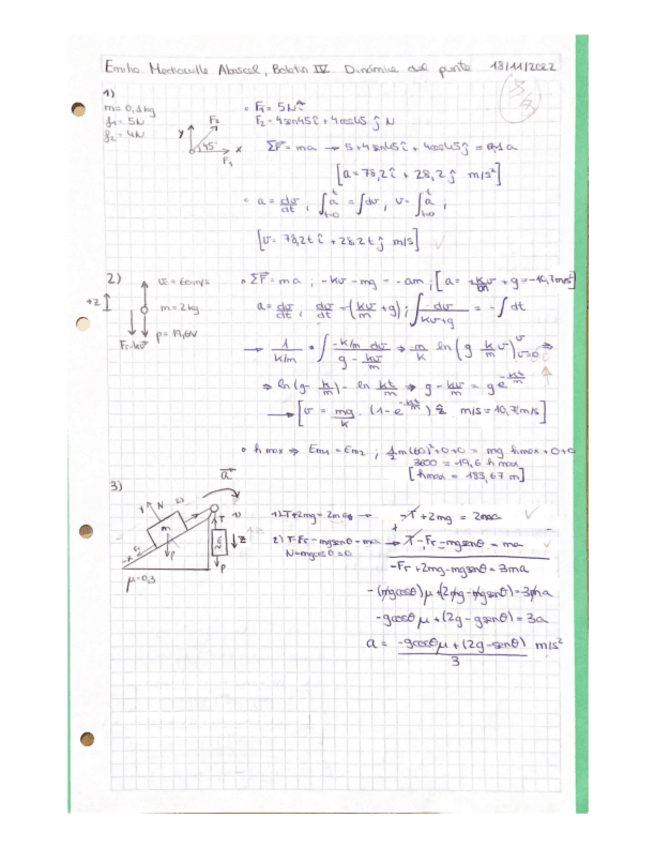 Emilio Mediavilla Abascal, Boletín IV Dinámica del punto 18/11/2022
1)
m = 0,1 kg
f₁ = 5N
f₂ = 4N
y
F₂
45°
x
F₁
• F₁ = 5N î
F₂ = 4 sen45 î + 4 cos45 ĵ N
ΣF = ma → 5 + 4 sen45 î + 4 cos45 ĵ = 0,1 a
[a = 78,2 î + 28,2 ĵ m/s²]
• a = dv/dt ; ∫ₜ₌₀ᵗ a = ∫dv, v = ∫ₜ₌₀ᵗ a ;
[v = 78,2t î + 28,2 t ĵ m/s]
2)
+z
v = 60m/s
m = 2kg
p = 19,6N
Fr = kv
• ΣF = ma ; -kv - mg = -am ; [a = kv/m + g = -10,7m/s²]
a = dv/dt ; dv/dt = -(kv/m + g) ; ∫ dv/kv+g = -∫dt
→ 1/k/m • ∫ -k/m dv / g - kv/m → -m/k ln(g k/m v)ᵛᵥ₌₀ ⇒
⇒ ln(g - k/m) - ln kt/m ⇒ g - kv/m = g e^-kt/m
→ [v = mg/k . (1 - e^-kt/m) ẑ m/s = 10,7m/s]
• h max ⇒ Em₁ = Em₂ ; 1/2 m(60)² + 0 + 0 = mg hmax + 0 + 0
3600 = 19,6 h max
[hmax = 183,67 m]
3)
a
y N 2)
m
T 1)
2m
z
Fr
-x
p
p
μ = 0,3
1) T + 2mg = 2ma → -T + 2mg = 2ma
+
2) T - Fr - mg senθ = ma → T - Fr - mg senθ = ma
N = mg cosθ = 0
-Fr + 2mg - mg senθ = 3ma
- (mg cosθ) μ + (2mg - mg senθ) = 3ma
- g cosθ μ + (2g - g senθ) = 3a
a = -g cosθ μ + (2g - senθ) / 3 m/s²